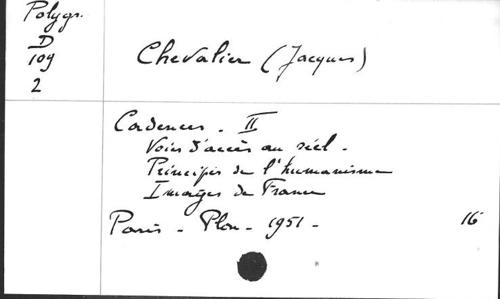 Polygr.
D
109
2
Chevalier (Jacques)
Cadences. II
Voies d'accès au réel.
Principes de l'humanisme
Images de France
Paris - Plon - 1951 -
16